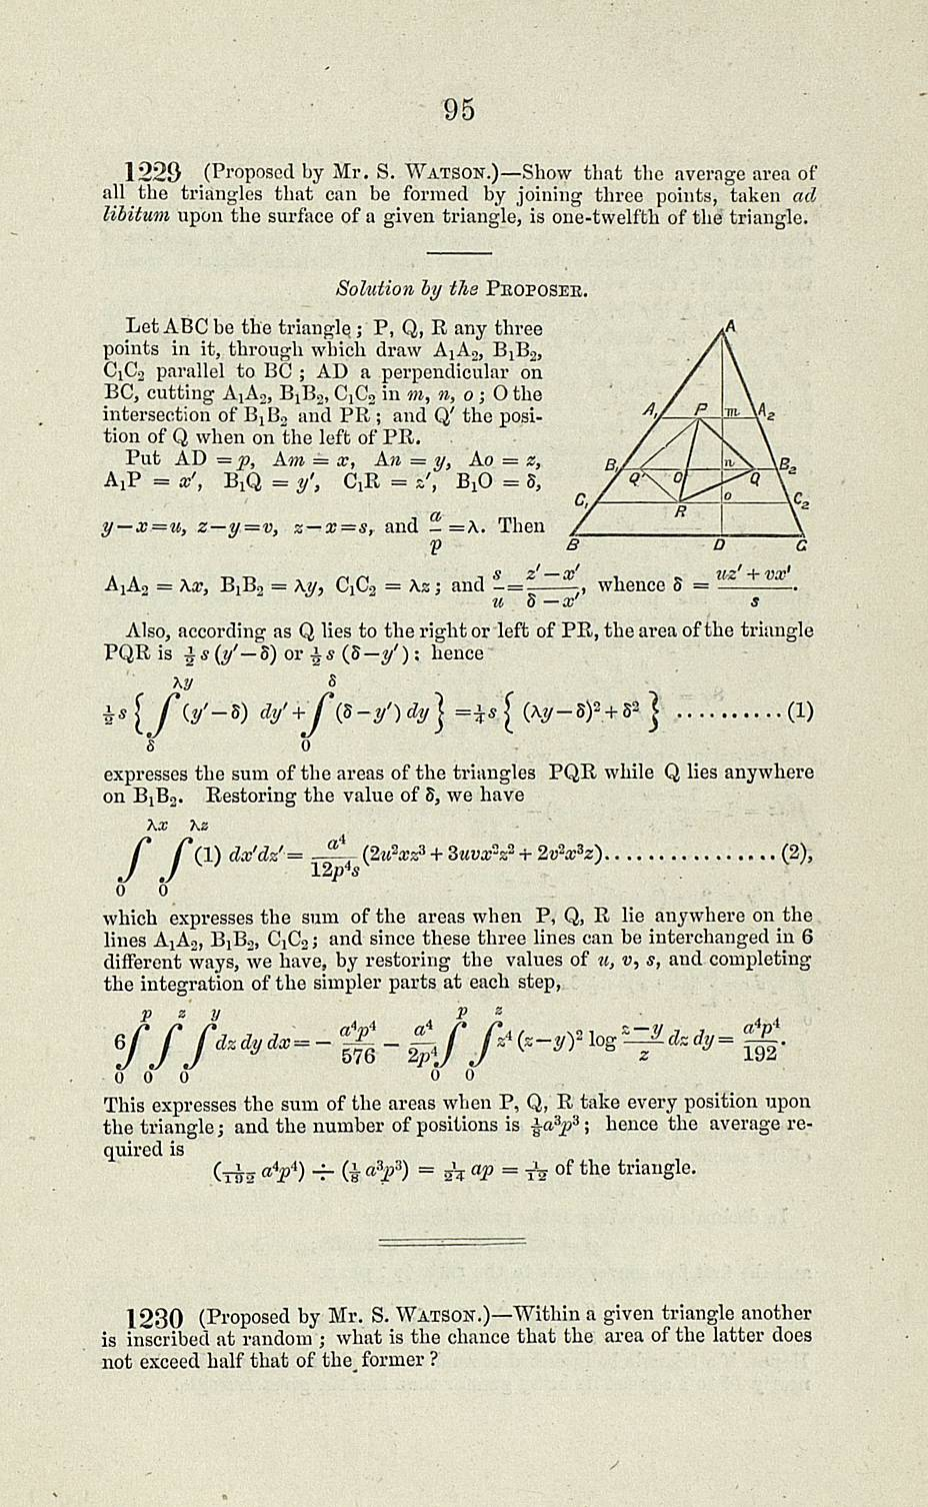 95
1229 (Proposed by Mr. S. WATSON.)—Show that the average area of
all the triangles that can be formed by joining three points, taken ad
libitum upon the surface of a given triangle, is one-twelfth of the triangle.
Solution by the PROPOSER.
Let ABC be the triangle; P, Q, R any three
points in it, through which draw A₁A₂, B₁B₂,
C₁C₂ parallel to BC; AD a perpendicular on
BC, cutting A₁A₂, B₁B₂, C₁C₂ in m, n, o; O the
intersection of B₁B₂ and PR; and Q′ the posi-
tion of Q when on the left of PR.
Put AD = p, Am = x, An = y, Ao = z,
A₁P = x′, B₁Q = y′, C₁R = z′, B₁O = δ,
y—x=u, z—y=v, z—x=s, and a/p =λ. Then
A
A₁ P m A₂
B₁ Q′ O n Q B₂
C₁ R o C₂
B D C
A₁A₂ = λx, B₁B₂ = λy, C₁C₂ = λz; and s/u = (z′—x′)/(δ—x′), whence δ = (uz′ + vx′)/s.
Also, according as Q lies to the right or left of PR, the area of the triangle
PQR is ½ s (y′—δ) or ½ s (δ—y′); hence
½ s { ∫_δ^λy (y′—δ) dy′ + ∫_0^δ (δ—y′) dy } = ¼ s { (λy—δ)² + δ² } ..........(1)
expresses the sum of the areas of the triangles PQR while Q lies anywhere
on B₁B₂. Restoring the value of δ, we have
∫_0^λx ∫_0^λz (1) dx′dz′ = a⁴/12p⁴s (2u²xz³ + 3uvx²z² + 2v²x³z).................(2),
which expresses the sum of the areas when P, Q, R lie anywhere on the
lines A₁A₂, B₁B₂, C₁C₂; and since these three lines can be interchanged in 6
different ways, we have, by restoring the values of u, v, s, and completing
the integration of the simpler parts at each step,
6 ∫_0^p ∫_0^z ∫_0^y dz dy dx = — a⁴p⁴/576 — a⁴/2p⁴ ∫_0^p ∫_0^z z⁴ (z—y)² log (z—y)/z dz dy = a⁴p⁴/192.
This expresses the sum of the areas when P, Q, R take every position upon
the triangle; and the number of positions is ⅛a³p³; hence the average re-
quired is
(1/192 a⁴p⁴) ÷ (⅛ a³p³) = 1/24 ap = 1/12 of the triangle.
1230 (Proposed by Mr. S. WATSON.)—Within a given triangle another
is inscribed at random; what is the chance that the area of the latter does
not exceed half that of the former?